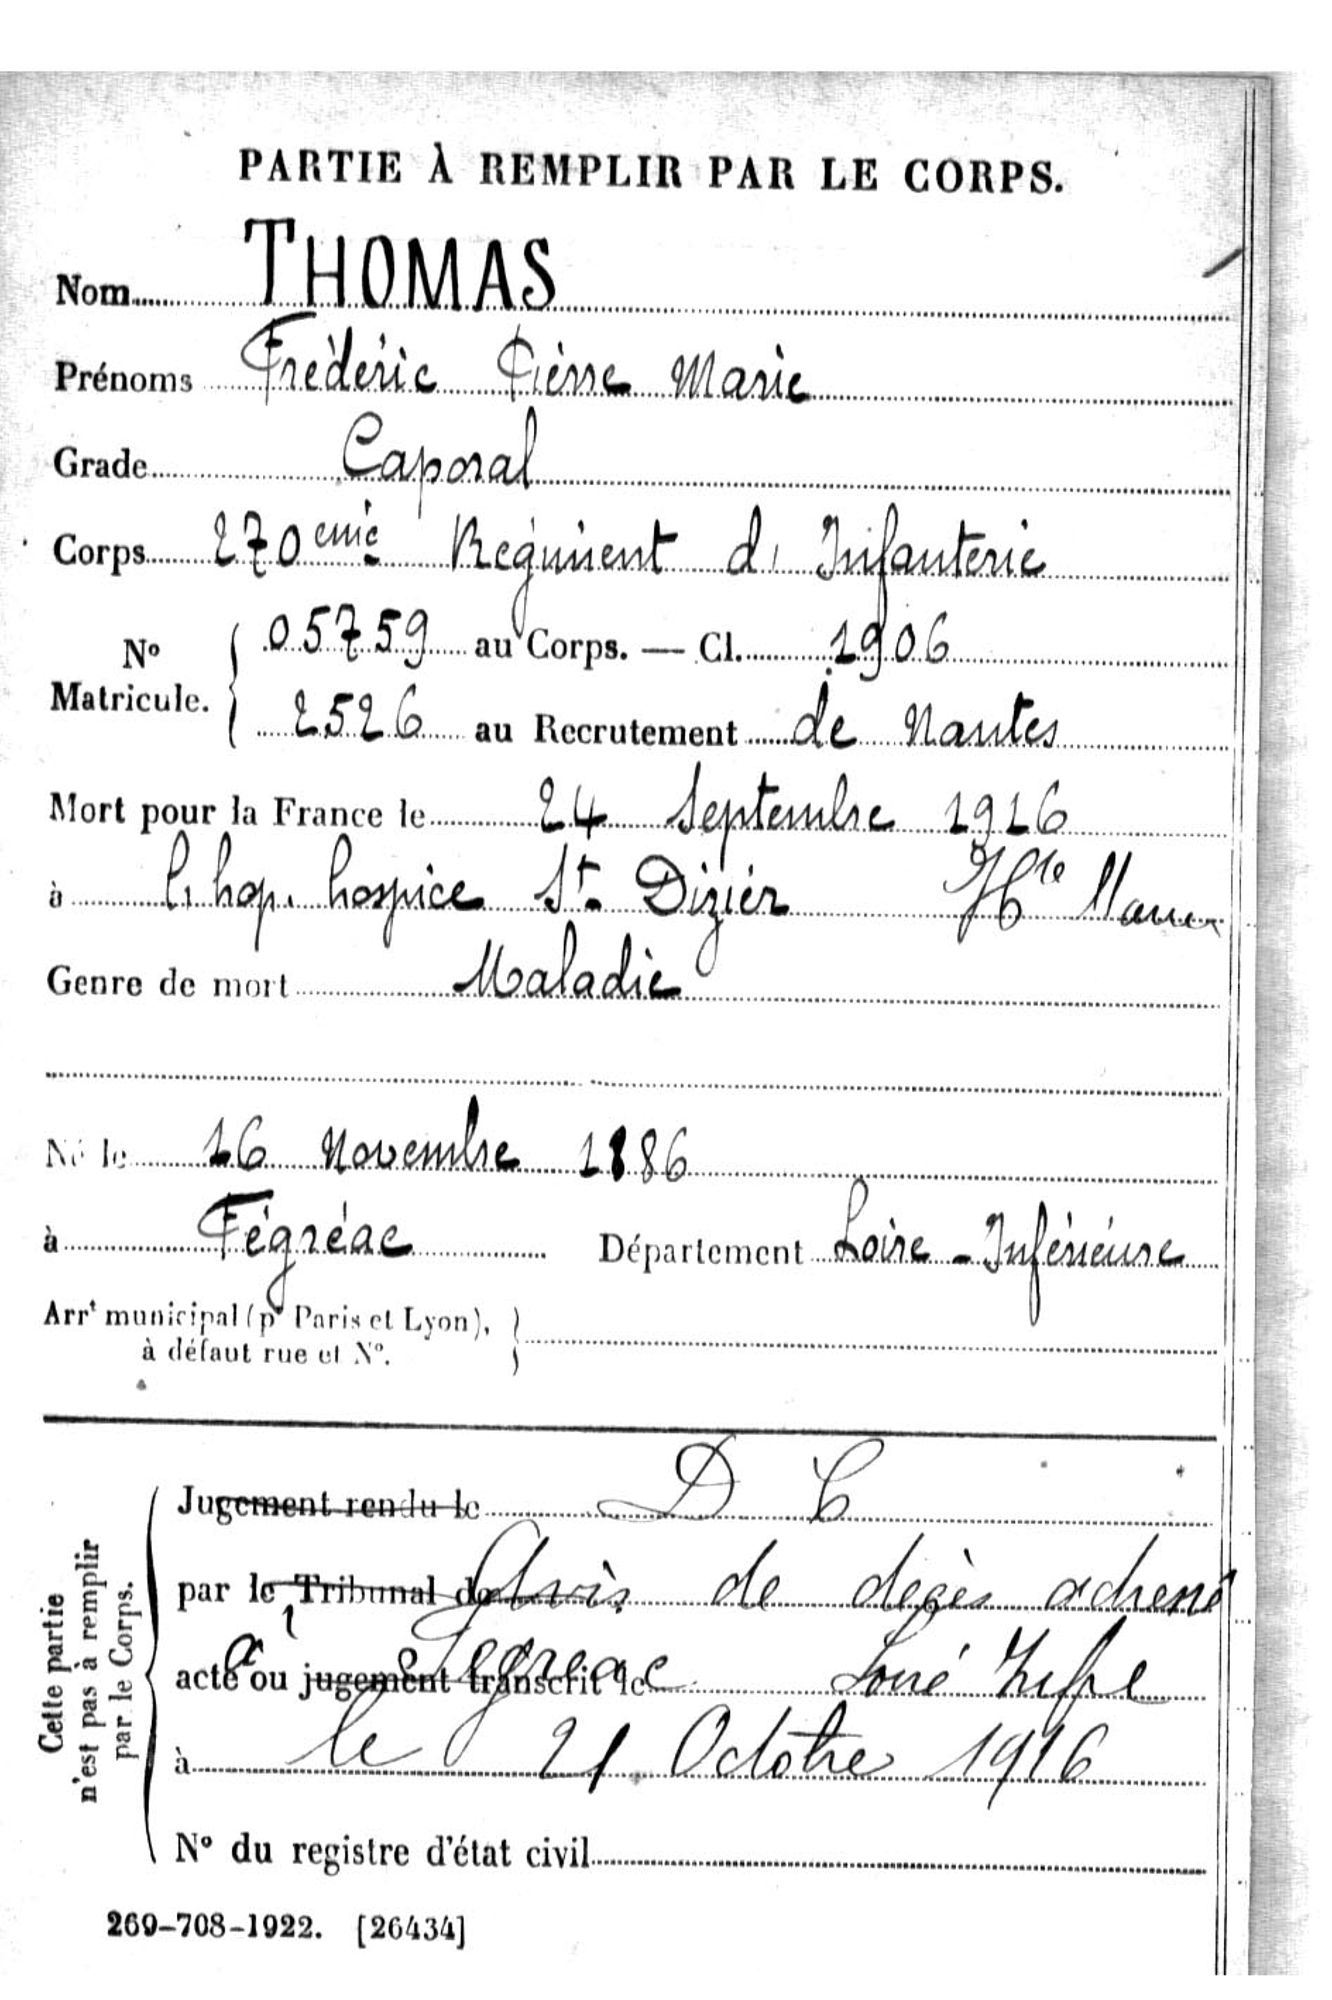 PARTIE À REMPLIR PAR LE CORPS.
Nom THOMAS
Prénoms Frédéric Pierre Marie
Grade Caporal
Corps 270eme Régiment d'Infanterie
N° Matricule. 05759 au Corps. — Cl. 1906
2526 au Recrutement de Nantes
Mort pour la France le 24 Septembre 1916
à l'hop. hospice St Dizier Hte Marne
Genre de mort Maladie
Né le 16 Novembre 1886
à Fégréac Département Loire-Inférieure
Arrt municipal (pr Paris et Lyon),
à défaut rue et N°.
Cette partie
n'est pas à remplir
par le Corps.
Jugement rendu le D C
par le Tribunal de Avis de décès adressé
acte ou jugement transcrit le à Fégréac Loire Infre
à le 21 Octobre 1916
N° du registre d'état civil
269-708-1922. [26434]